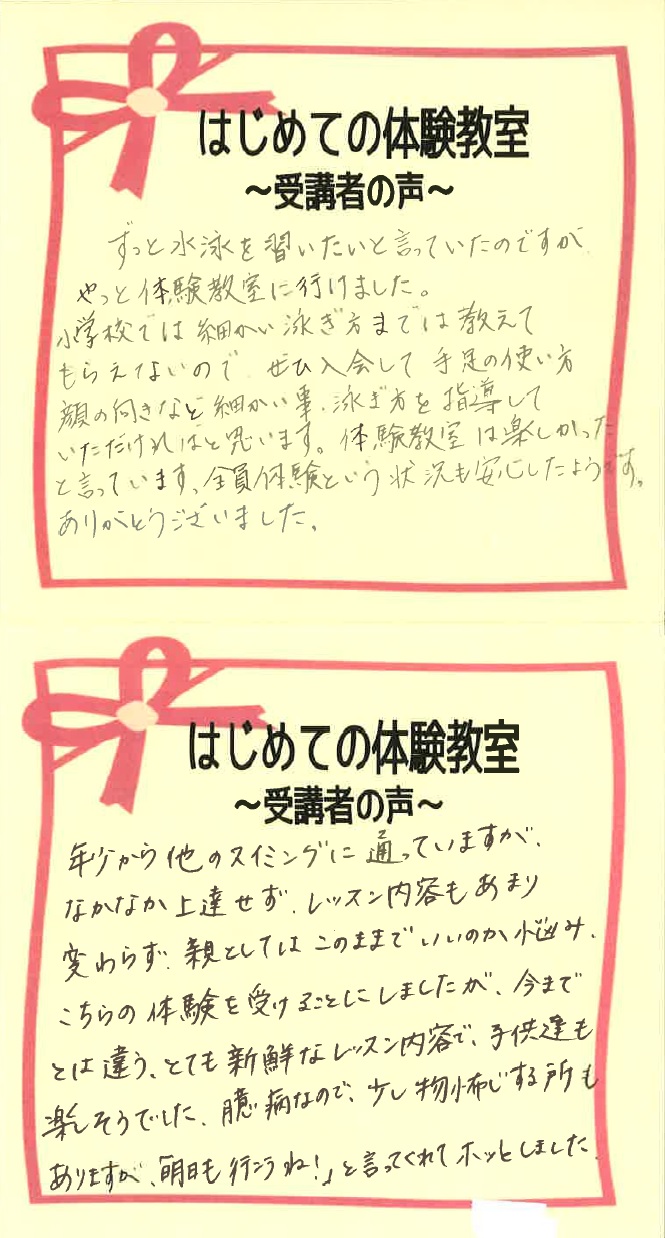 はじめての体験教室
～受講者の声～
ずっと水泳を習いたいと言っていたのですが、
やっと体験教室に行けました。
小学校では細かい泳ぎ方までは教えて
もらえないので、ぜひ入会して手足の使い方
顔の向きなど細かい事、泳ぎ方を指導して
いただければと思います。体験教室は楽しかった
と言っています。全員体験という状況も安心したようです。
ありがとうございました。
はじめての体験教室
～受講者の声～
年少から他のスイミングに通っていますが、
なかなか上達せず、レッスン内容もあまり
変わらず、親としてはこのままでいいのか悩み、
こちらの体験を受けることにしましたが、今まで
とは違う、とても新鮮なレッスン内容で、子供達も
楽しそうでした。臆病なので、少し物怖じする所も
ありますが、「明日も行こうね！」と言ってくれてホッとしました。